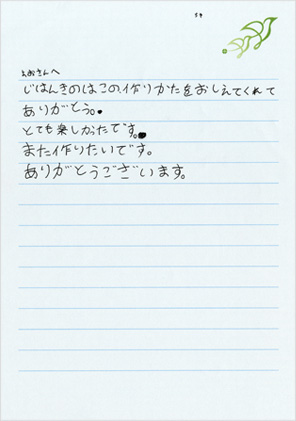 えおさんへ
じはんきのはこの作りかたをおしえてくれて
ありがとう。
とても楽しかったです。
また作りたいです。
ありがとうございます。